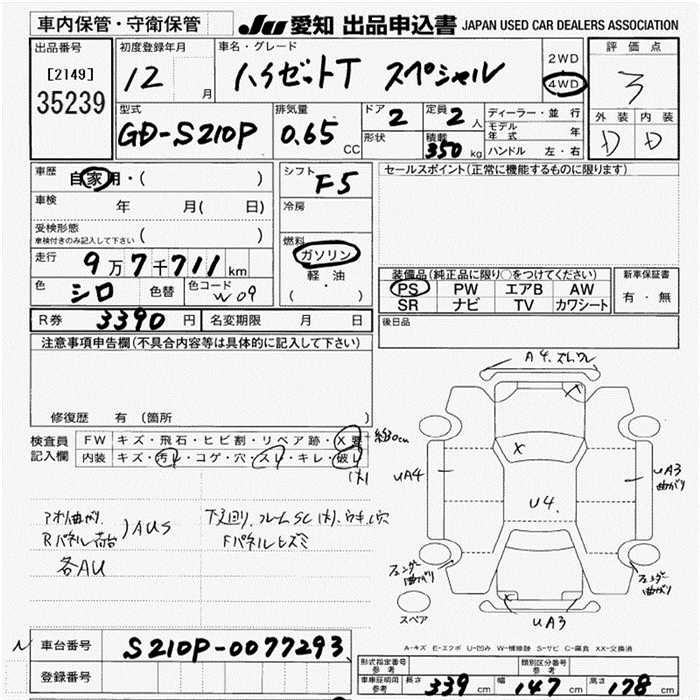 車内保管・守衛保管 JU 愛知 出品申込書 JAPAN USED CAR DEALERS ASSOCIATION
出品番号
[2149]
35239
初度登録年月
12 月
車名・グレード
ハイゼットT スペシャル
2WD
4WD
評価点
3
外装 内装
D D
型式
GD-S210P
排気量
0.65 CC
ドア 2
形状
定員 2 人
積載 350 kg
ディーラー・並行
モデル年式 年
ハンドル 左・右
車歴 自家用・( )
車検 年 月( 日)
受検形態
車検付きのみ記入して下さい ( )
走行 9万7千711 km
色 シロ 色替 色コード W09
シフト F5
冷房
燃料
ガソリン
軽油
( )
セールスポイント(正常に機能するものに限ります)
装備品(純正品に限り○をつけてください)
PS PW エアB AW
SR ナビ TV カワシート
新車保証書
有・無
R券 3390 円 名変期限 月 日
後日品
注意事項申告欄(不具合内容等は具体的に記入して下さい)
修復歴 有 (箇所 )
検査員
記入欄
FW キズ・飛石・ヒビ割・リペア跡・X要
内装 キズ・汚レ・コゲ・穴・スレ・キレ・破レ
(大)
アオリ曲がり
Rパネル荷台 ) AUS
各AU
下廻り、フレームSC(大)、ウキ、穴
Fパネルヒズミ
A4.ズレ、ワレ
X
UA4
U4.
UA3
曲がり
フェンダー
曲がり
フェンダー
曲がり
X
UA3
スペア
A-キズ E-エクボ U-凹み W-補修跡 S-サビ C-腐食 XX-交換済
N 車台番号 S210P-0077293
登録番号
形式指定番号
参考
類別区分番号
参考
車庫証明用
参考
長さ 339 cm 幅 147 cm 高さ 178 cm